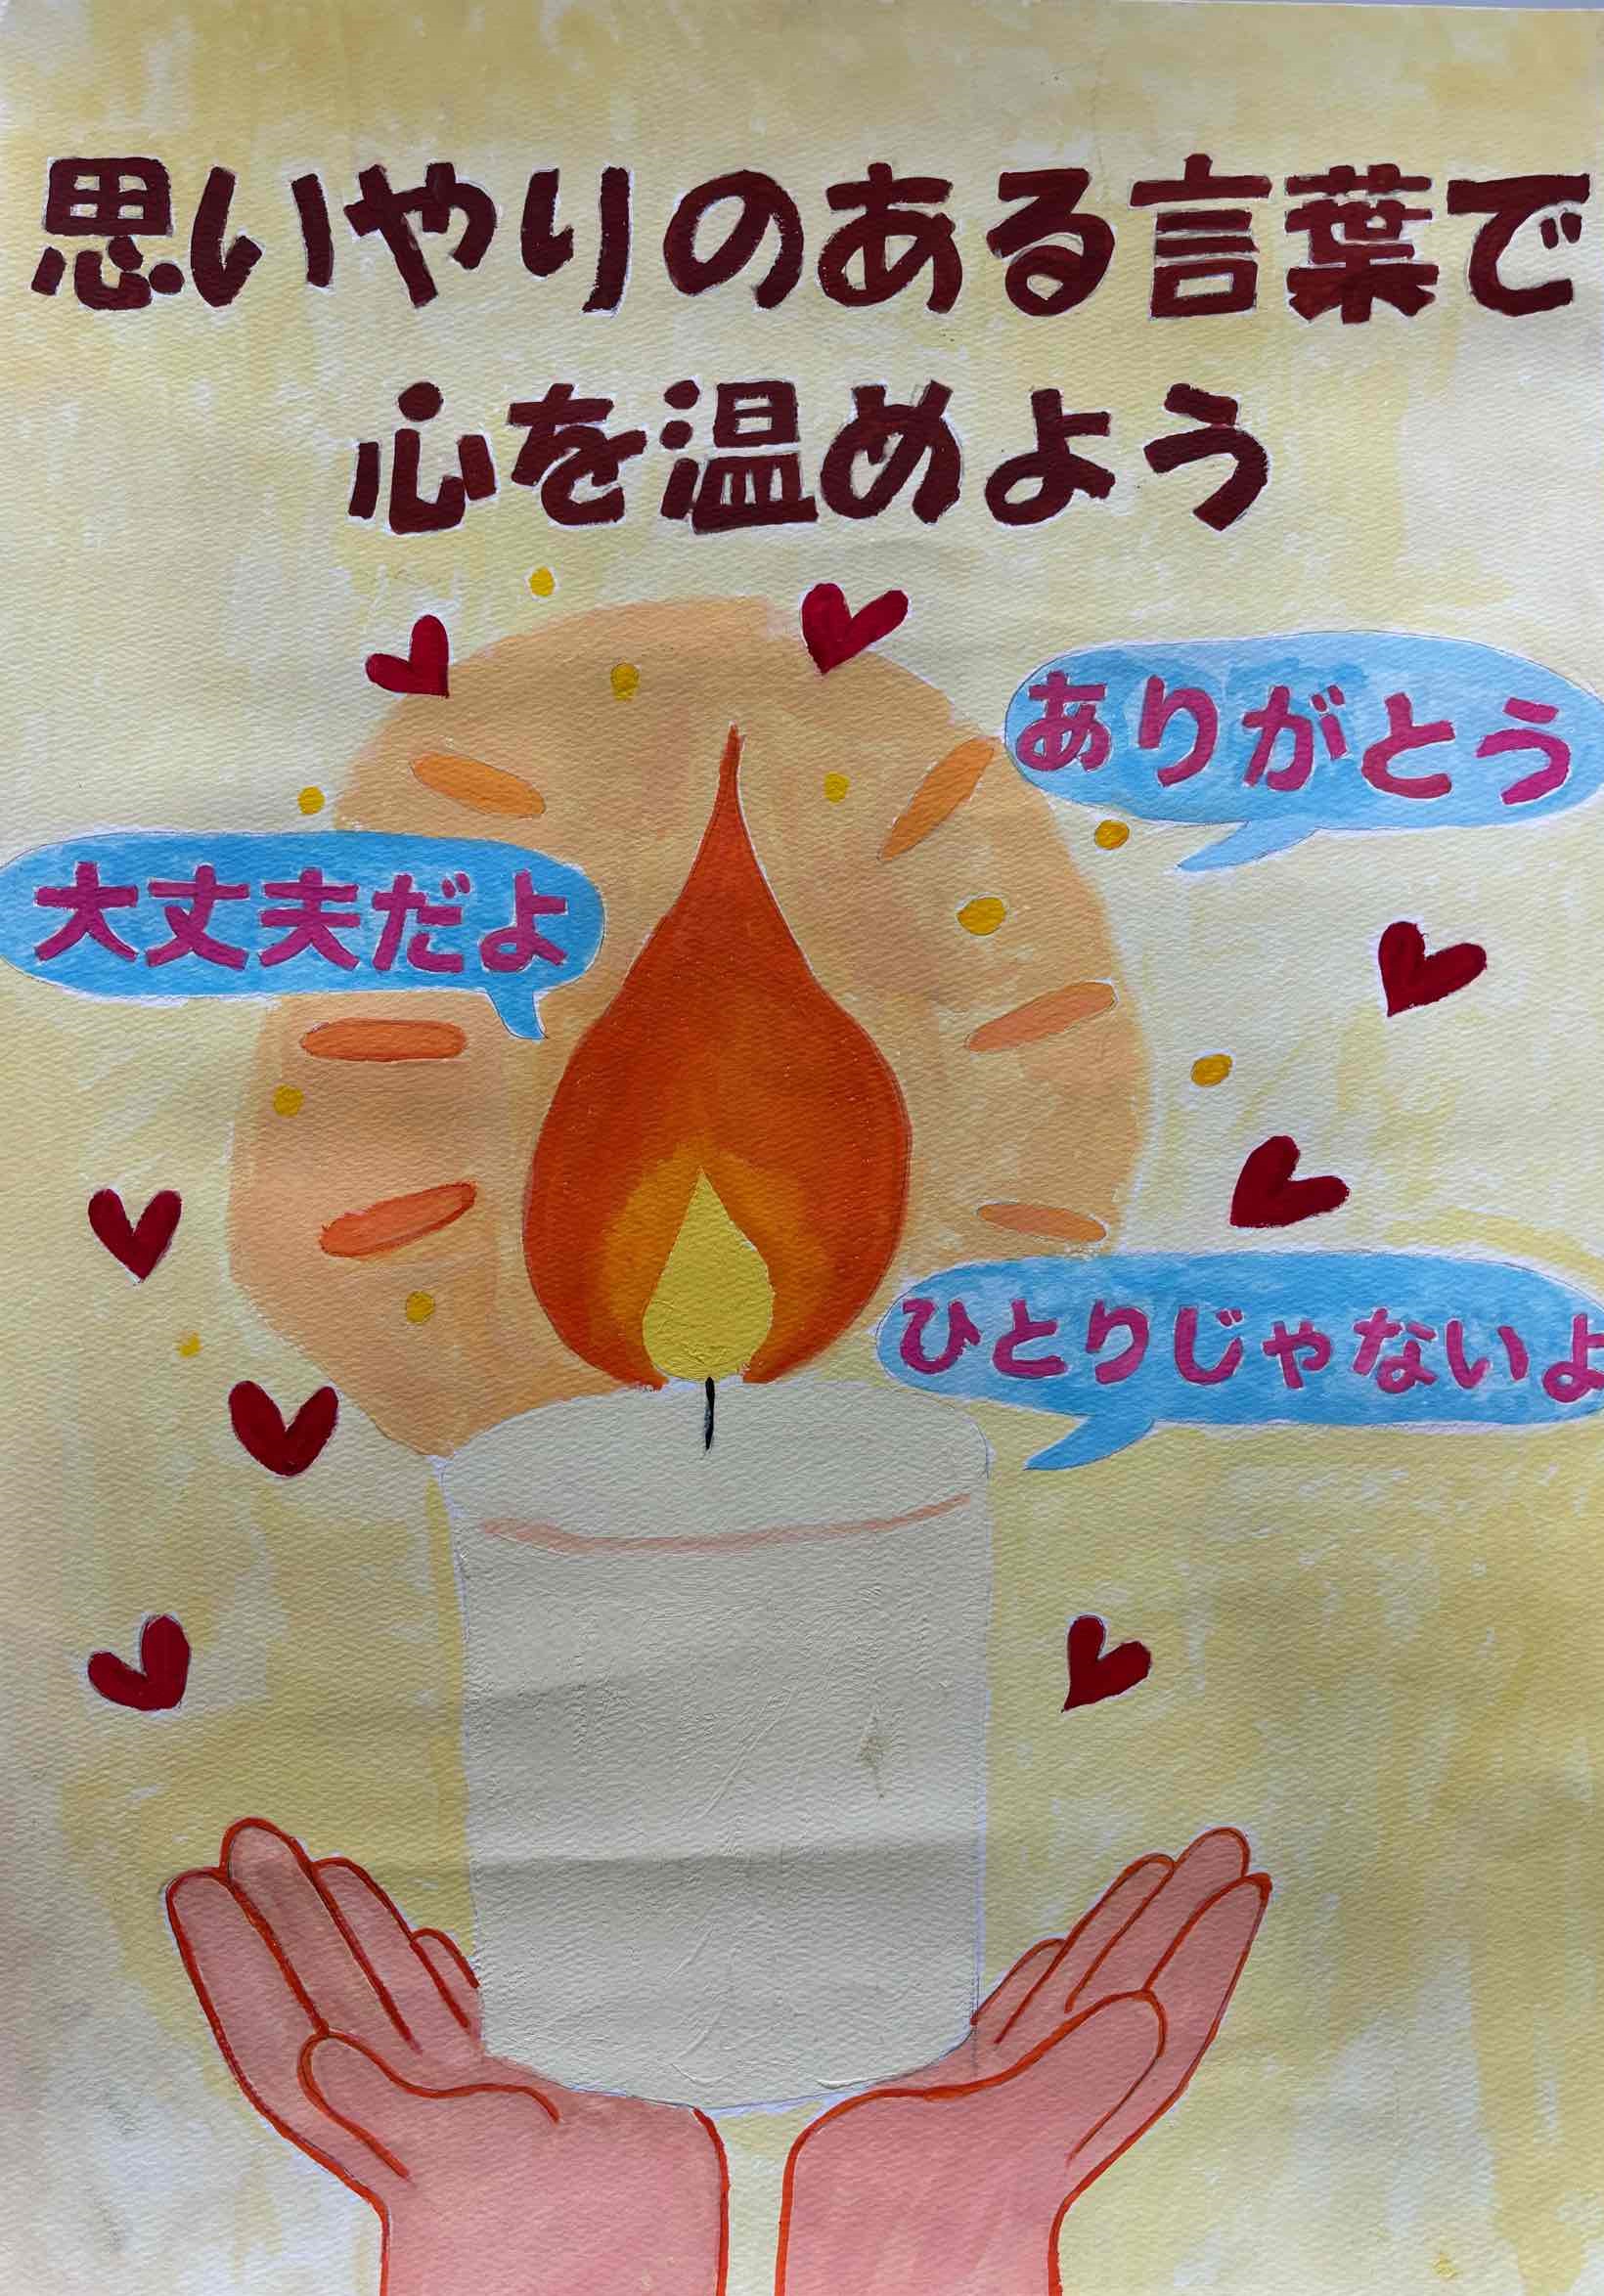 思いやりのある言葉で
心を温めよう
ありがとう
大丈夫だよ
ひとりじゃないよ